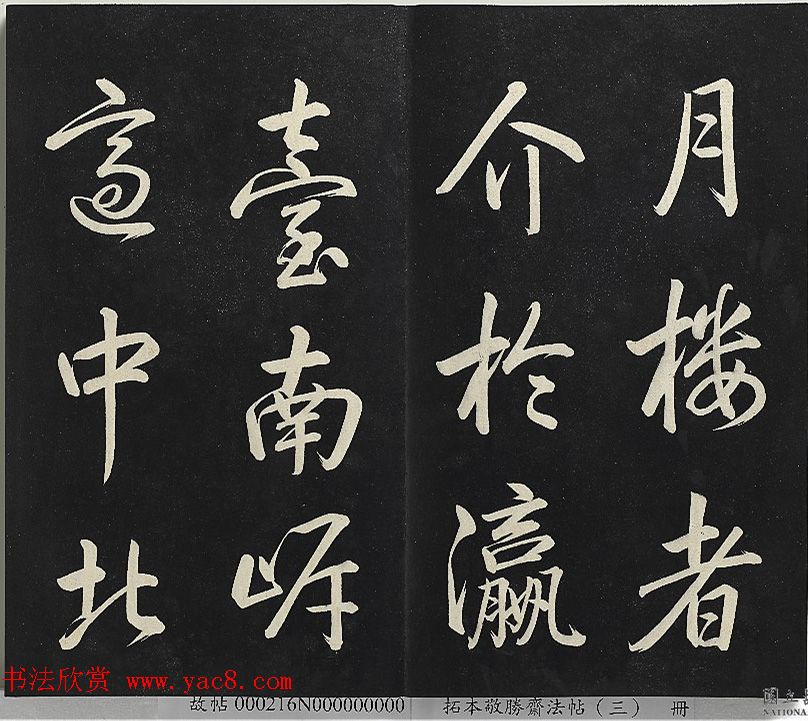 月楼者
介於瀛
臺南岸
適中北
书法欣赏 www.yac8.com
故帖 000216N000000000 拓本敬勝齋法帖(三) 冊
國立
NATIONA